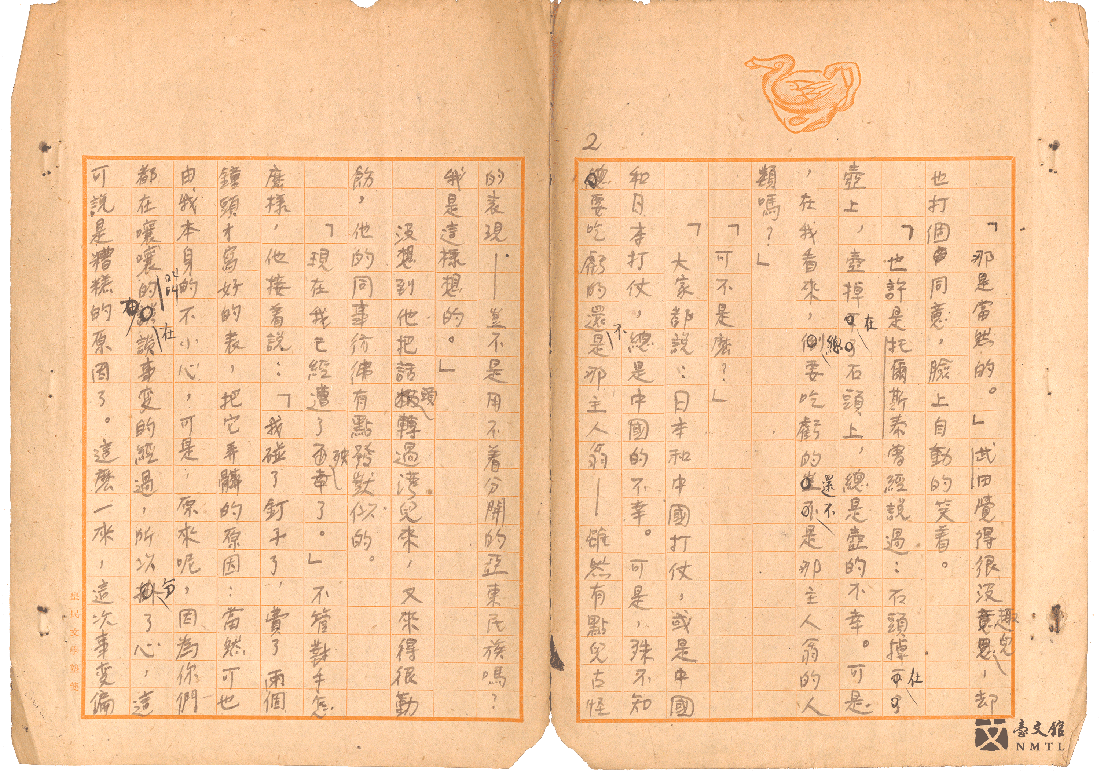 2
「那是當然的。」武田覺得很沒趣兒，却
也打個同意，臉上自動的笑着。
「也許是托爾斯泰曾經說過：石頭掉在
壺上，壺掉在石頭上，總是壺的不幸。可是
，在我看來，總要吃虧的還不是那主人翁的人
類嗎？」
「可不是麼？」
「大家都說：日本和中國打仗，或是中國
和日本打仗，總是中國的不幸。可是，殊不知
總要吃虧的還不是那主人翁——雖然有點兒古怪
的表現——豈不是用不着分開的亞東民族嗎？
我是這樣想的。」
沒想到他把話頭轉過灣兒來，又來得很勤
飭，他的同事彷彿有點發獃似的。
「現在我已經遭了殃了。」不管對手怎
麼樣，他接着說：「我碰了釘子了，費了兩個
鐘頭才寫好的表，把它弄髒的原因：當然可也
由我本身的不小心，可是，原來呢，因為你們
都在嚷嚷的在談事變的經過，所以分了心，這
可說是糟糕的原因了。這麼一來，這次事變偏
臺文館
NMTL